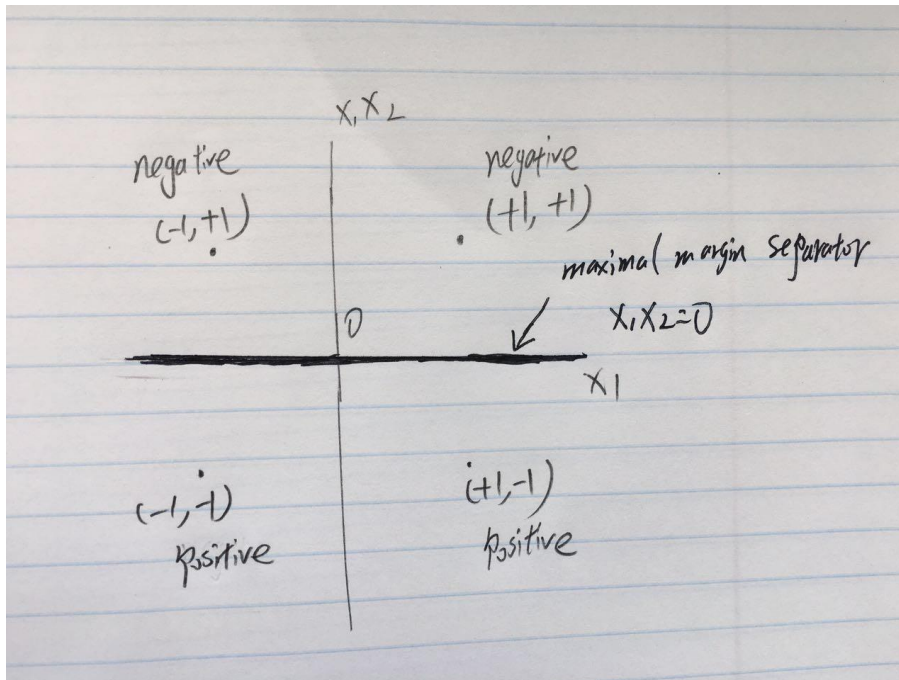 x₁x₂
negative
(-1,+1)
negative
(+1,+1)
maximal margin separator
x₁x₂=0
0
x1
(-1,-1)
positive
(+1,-1)
positive